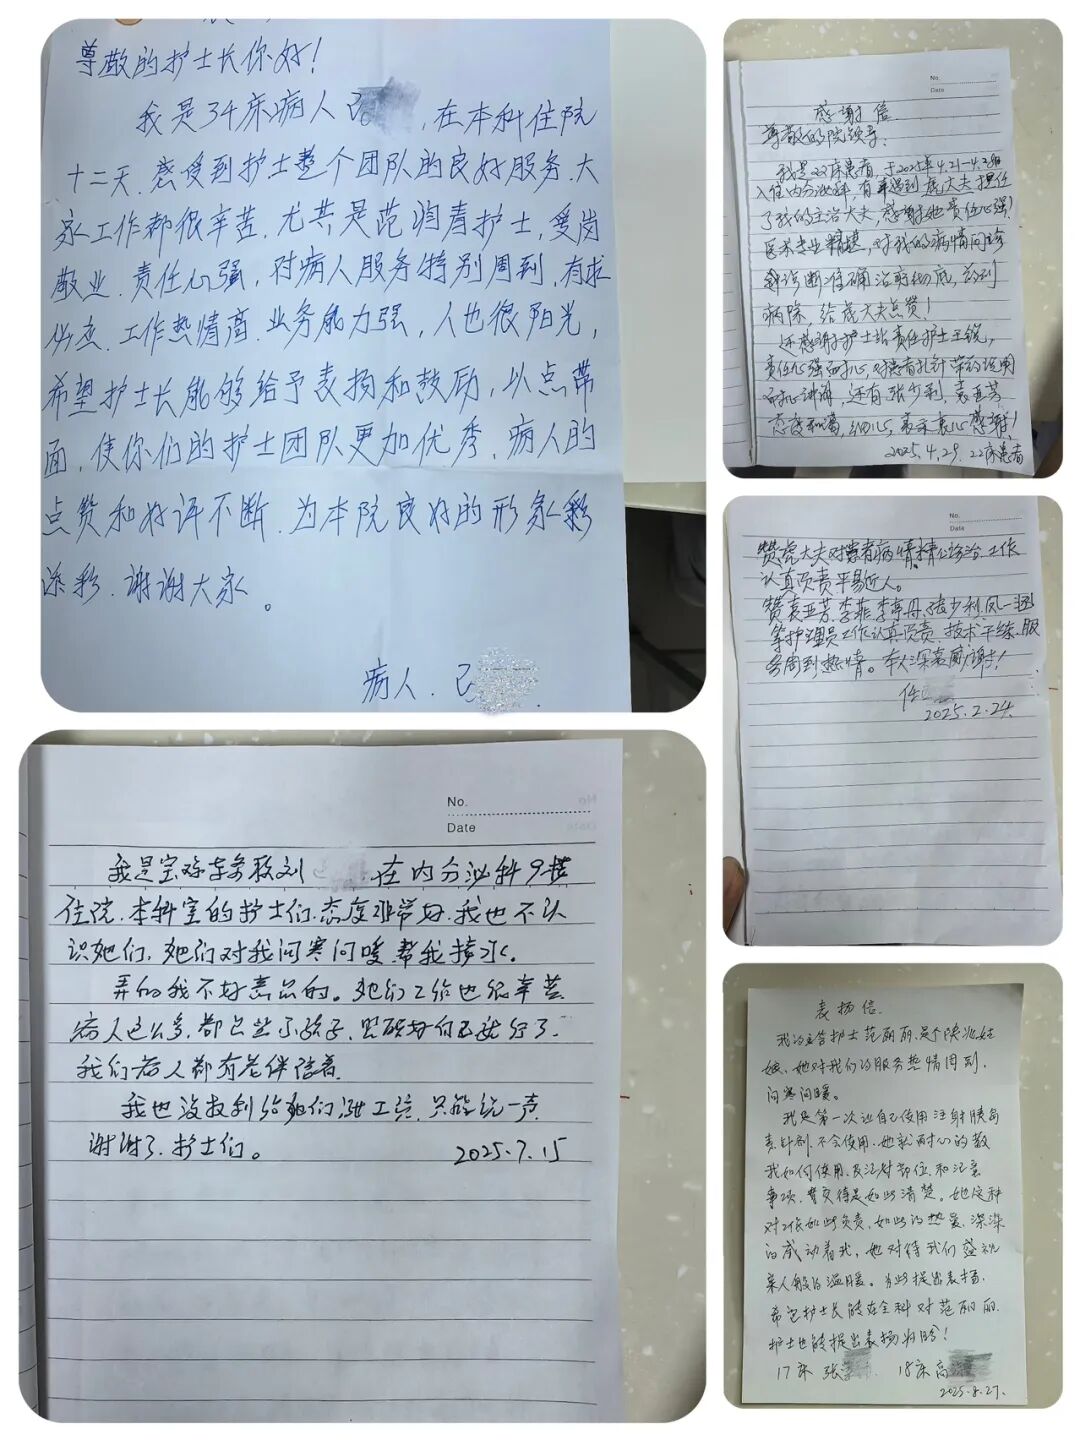 尊敬的护士长你好!
我是34床病人 ,在本科住院
十二天.感受到护士整个团队的良好服务.大
家工作都很辛苦.尤其是范 护士,爱岗
敬业.责任心强,对病人服务特别周到,有求
必应.工作热情高.业务能力强,人也很阳光,
希望护士长能够给予表扬和鼓励,以点带
面,使你们的护士团队更加优秀.病人的
点赞和好评不断.为本院良好的形象彩
添彩.谢谢大家。
病人.
No.
Date
我是宝鸡 在内分泌科9楼
住院.本科室的护士们.态度非常好.我也不认
识她们,她们对我问寒问暖.帮我接水。
弄的我不好意思的。她们工作也很辛苦.
病人这么多,都是些小孩子,
我们病人都有老伴陪着.
我也没权利给她们 工资.只能说一声
谢谢了.护士们。 2025.7.15
No.
Date
感谢信
尊敬的院领导:
我是22床患者,于2025年4.21-4.
入住内分泌科,有幸遇到虎大夫担任
了我的主治大夫,感谢她责任心强!
医术专业精 ,对我的病情问诊
诊断准确治疗彻底,药到
病除,给虎大夫点赞!
还感谢护士站责任护士王锐,
责任心强 ,对患者扎针带药运用
耐心讲解,还有张少利,袁亚芳
态度和蔼,细心,表示衷心感谢!
2025.4.29.22床患者
No.
Date
赞虎大夫对患者病情精心诊治.工作
认真负责平易近人。
赞袁亚芳.李菲.李亭丹.张少利.凤一
等护理员工作认真负责.技术干练.服
务周到热情。本人深表感谢!
任
2025.2.24.
表扬信
我的主管护士范丽丽.是个陕北姑
娘、她对我们的服务热情周到,
问寒问暖。
我是第一次让自己使用注射胰岛
素针剂.不会使用.她就耐心的教
我如何使用.及注射部位.和注意
事项.都交待是如此清楚。她这种
对工作如此负责.如此的热爱.深深
的感动着我,她对待我们 视
亲人般的温暖。为此提出表扬.
希望护士长能在全科对范丽丽
护士也能提出表扬 !
17床 张 18床 高
2025.8.27.